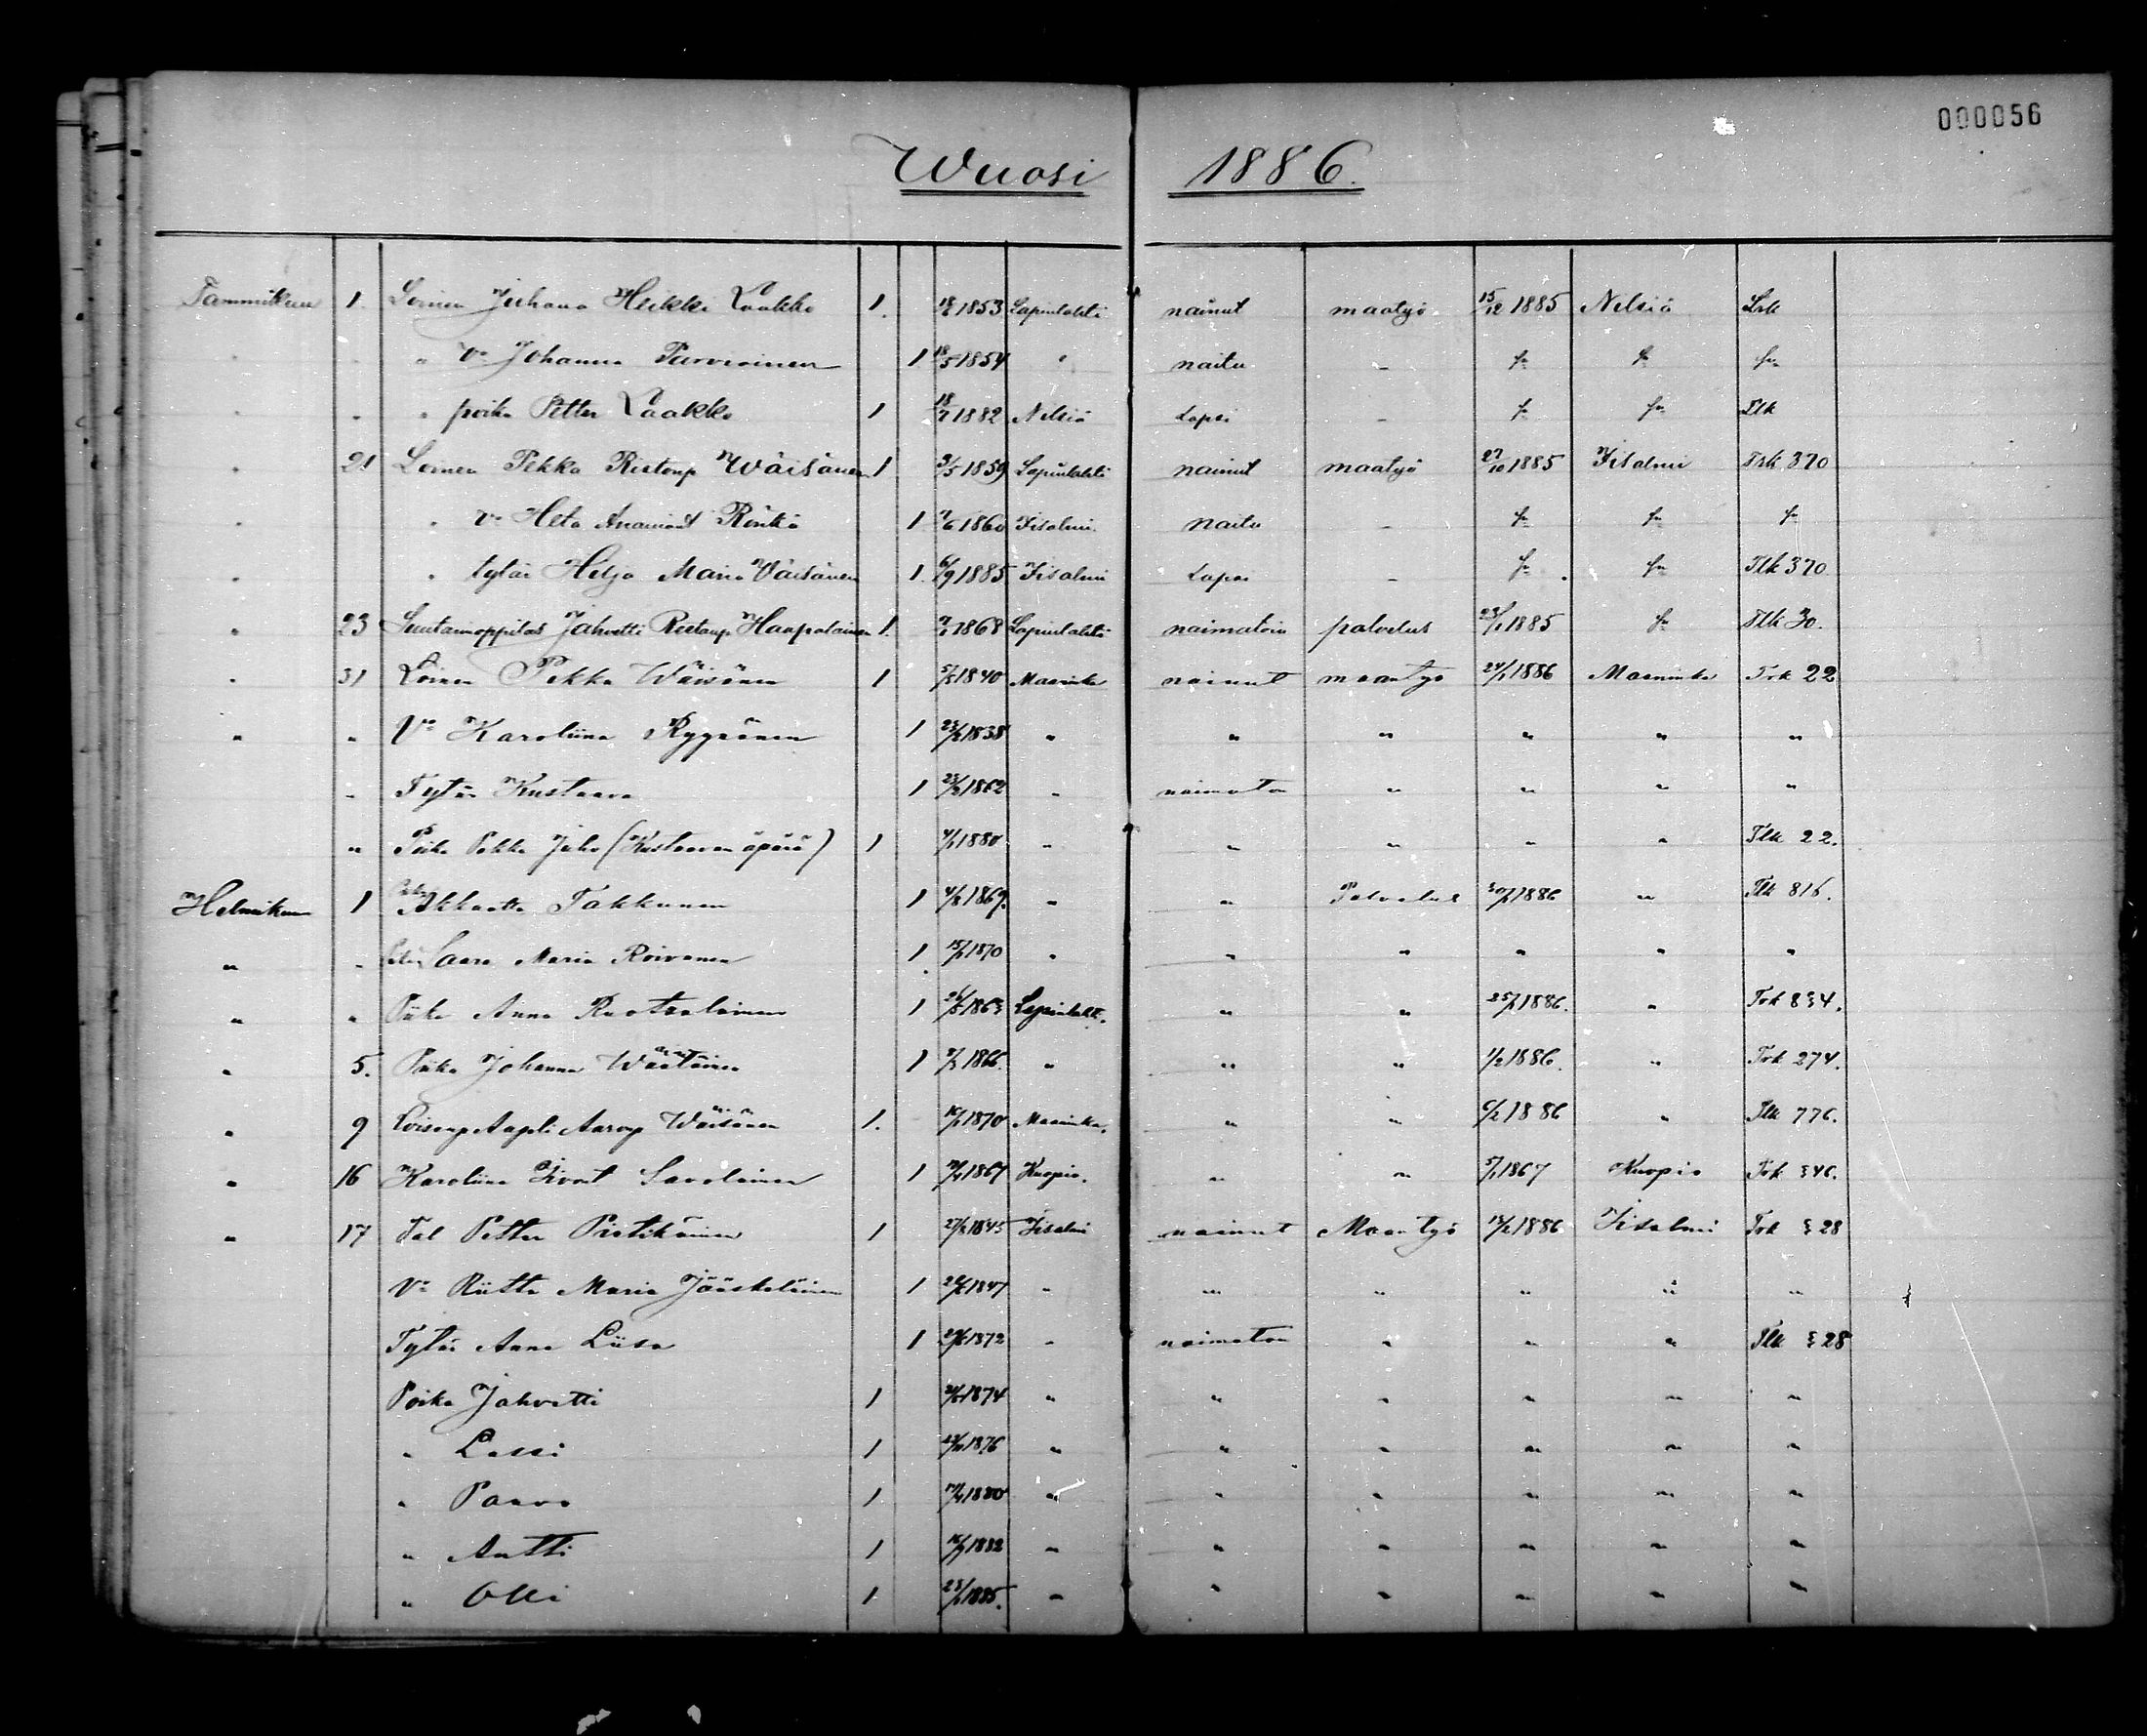 000056
Wuosi 1886.
Tammikuu 1. Loinen Juhana Heikki Laakko 1. 1853 Lapinlahti nainut maatyö 15/12 1885 Nilsiä
" " " Vo Johanna Parviainen 1 18/5 1854 " naitu - fn fn fn
" " " poika Petter Laakko 1 18/7 1882 Nilsiä Lapsi - fn fn Tlk
" 21 Loinen Pekka Ristonp Wäisänen 1 3/5 1859 Lapinlahti nainut maatyö 27/10 1885 Iisalmi Trk 370
" " Vo Heta Rönkö 1 7/6 1860 Iisalmi naitu - fn fn fn
" " tytär Helja Maria Väisänen 1. 6/9 1885 Iisalmi Lapsi - fn fn Tlk 370
" 23 Suutarinoppilas Jahvetti Ristonp Haapalainen 1. 1868 Lapinlahti naimatoin palvelus 1885 fn Tlk 30.
" 31 Loinen Pekka Wäisänen 1 1840 Maaninka nainut maantyö 24/1 1886 Maaninka Trk 22
" " Vo Karoliina Ryynänen 1 23/2 1838 " " " " " "
" Tytär Kustaava 1 1862 " naimaton " " " "
" Poika Pekka Juho (Kustaavan äpärä) 1 1880 " " " " " Tlk 22.
Helmikuu 1 Akkaatta Takkunen 1 1869. " " Palvelus 1886 " Tlk 816.
" " Saara Maria Roivanen 1 15/1 1870 " " " " " "
" " Piika Anna Ruotsalainen 1 1863 Lapinlahti. " " 25/1 1886. " Trk 834.
" 5. Piika Johanna 1 1866. " " " 1/2 1886. " Trk 274.
" 9 Loisenp Aapeli Aaronp Wäisänen 1. 1870 Maaninka. " " 6/2 1886 " Tlk 776.
" 16 Karoliina Savolainen 1 1867 Kuopio. " " 1867 Kuopio Trk 346.
" 17 Tal Petter Pirtikäinen 1 1845 Iisalmi nainut Maantyö 1886 Iisalmi Trk 328
Vo Riitta Maria Jääskeläinen 1 1847 " " " " " "
Tytär Anna Liisa 1 1872 " naimaton " " " Tlk 328
Poika Jahvetti 1 1874 " " " " " "
" Lassi 1 1876 " " " " " "
" Paavo 1 1880 " " " " " "
" Antti 1 1882 " " " " " "
" Olli 1 1885. " " " " " "